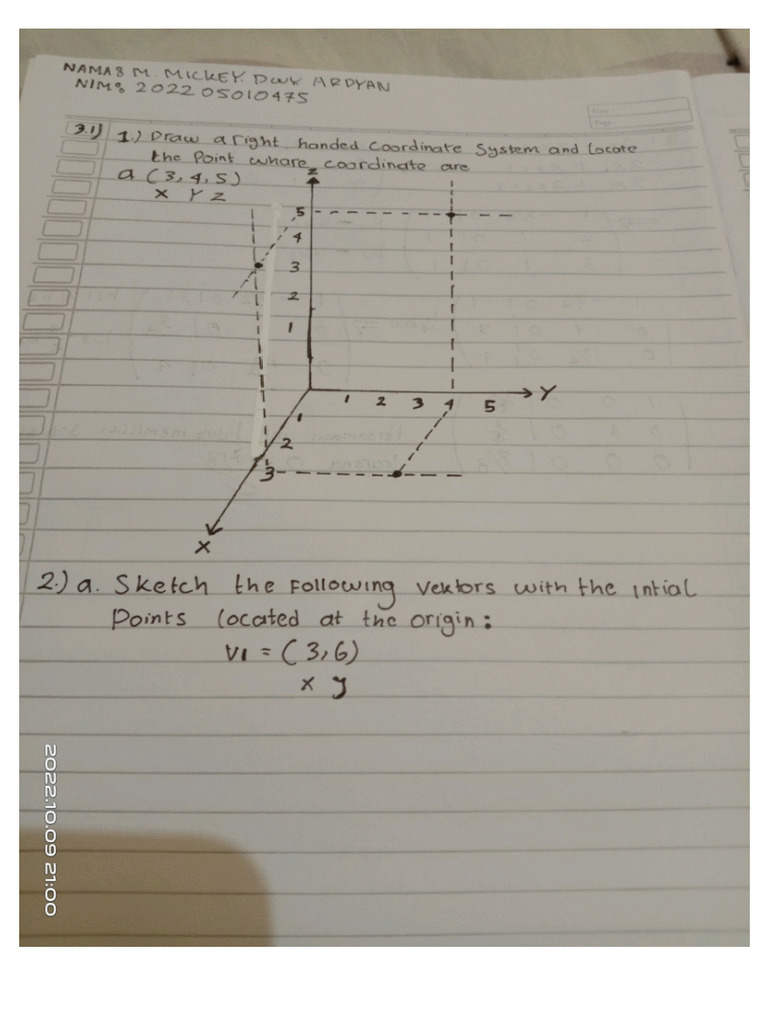 NAMA: M. MICKEY. DWY ARDYAN
NIM: 202205010475
3.1) 1.) Draw a right handed coordinate System and Locate
the Point whare coordinate are
a (3,4,5)
X Y Z
Z
5
4
3
2
1
1 2 3 4 5 Y
1
2
3
X
2.) a. Sketch the Following vektors with the intial
Points located at the origin:
V1 = (3,6)
x y
2022.10.09 21:00